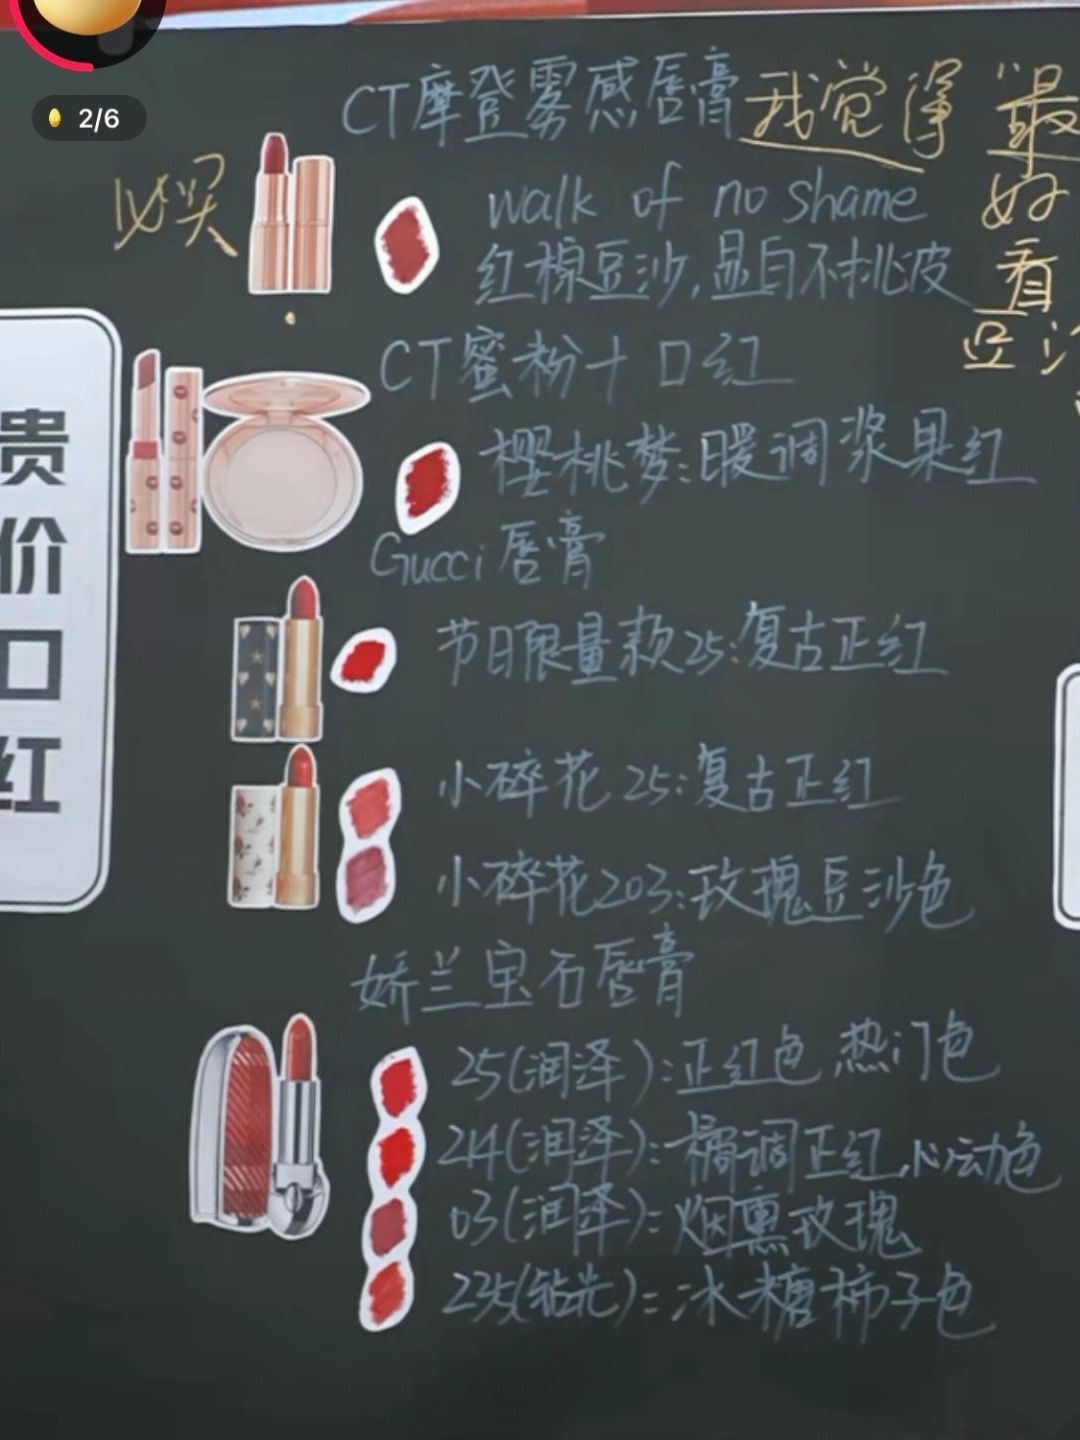 2/6
CT摩登雾感唇膏 我觉得"最
好
看
豆沙
必买
walk of no shame
红棕豆沙,显白不挑皮
CT蜜粉+口红
樱桃梦:暖调浆果红
Gucci唇膏
节日限量款25:复古正红
小碎花25:复古正红
小碎花203:玫瑰豆沙色
娇兰宝石唇膏
25(润泽):正红色 热门色
214(润泽):橘调正红,心动色
03(润泽):烟熏玫瑰
235(钻光):冰糖柿子色
贵
价
口
红